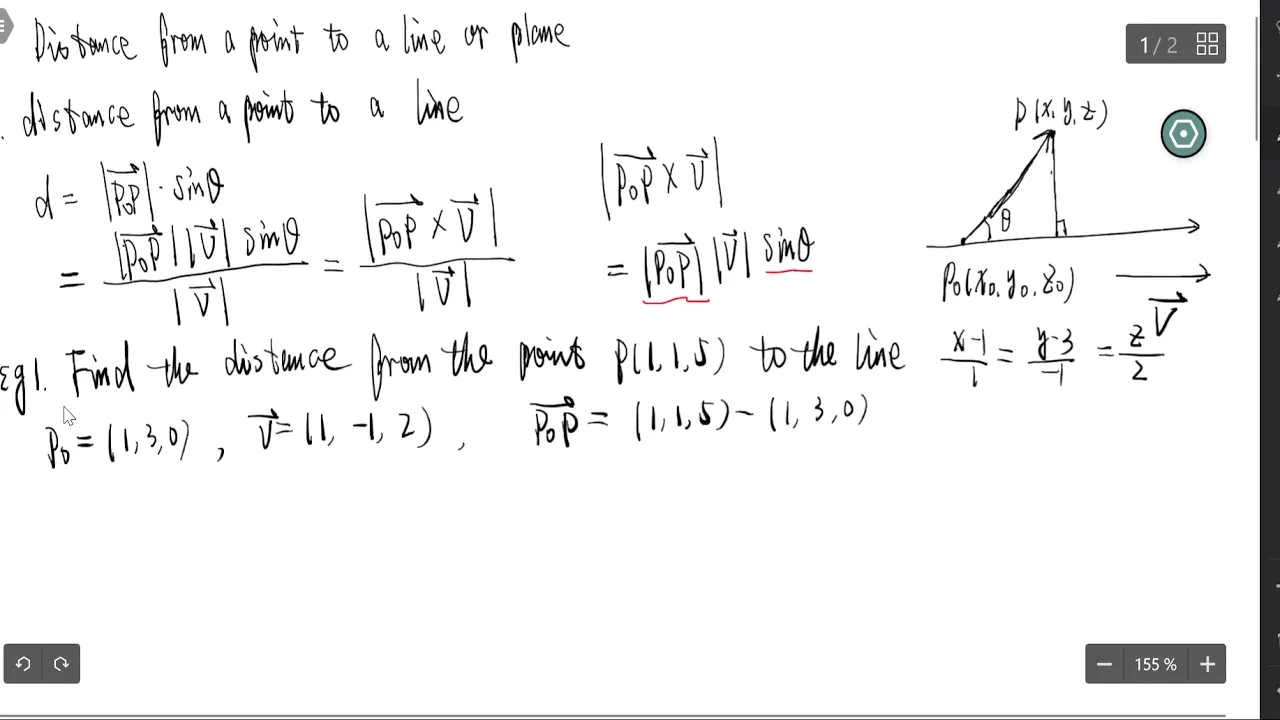 Distance from a point to a line or plane
1 / 2
. distance from a point to a line
P(x, y, z)
d = |P₀P| · sinθ
|P₀P × V|
= |P₀P| |V| sinθ / |V| = |P₀P × V| / |V|
= |P₀P| |V| sinθ
θ
P₀(x₀, y₀, z₀)
V
Eg1. Find the distance from the point P(1, 1, 5) to the line x-1/1 = y-3/-1 = z/2
P₀ = (1, 3, 0) , V = (1, -1, 2) , P₀P = (1, 1, 5) - (1, 3, 0)
155 %